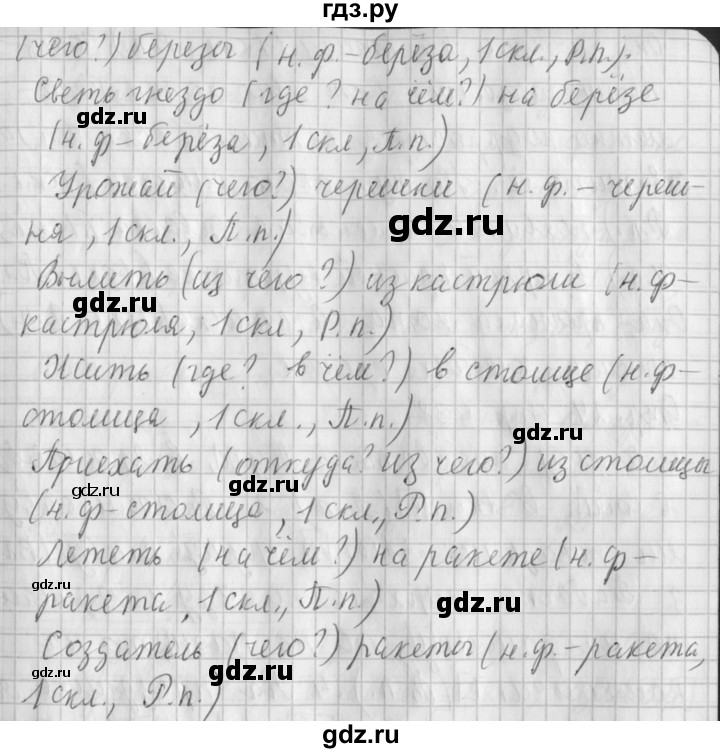 гдз.ру
(чего?) березы (н. ф.-берёза, 1 скл., Р.п.).
Светь гнездо (где? на чём?) на берёзе
gdz.ru
(н. ф-берёза, 1 скл, П.п.)
Урожай (чего?) черешни (н. ф. - череш-
gdz.ru
ня, 1 скл., П.п.)
Вылить (из чего?) из кастрюли (н. ф-
gdz.ru
кастрюля, 1 скл, Р.п.)
Жить (где? в чём?) в столице (н. ф-
столица, 1 скл., П.п.)
gdz.ru
Приехать (откуда? из чего?) из столицы
gdz.ru
gdz.ru
(н. ф-столица, 1 скл., Р.п.)
Лететь (на чём?) на ракете (н. ф-
gdz.ru
ракета, 1 скл., П.п.)
gdz.ru
Создатель (чего?) ракеты (н. ф.-ракета,
gdz.ru
gdz.ru
1 скл., Р.п.)
gdz.ru
gdz.ru